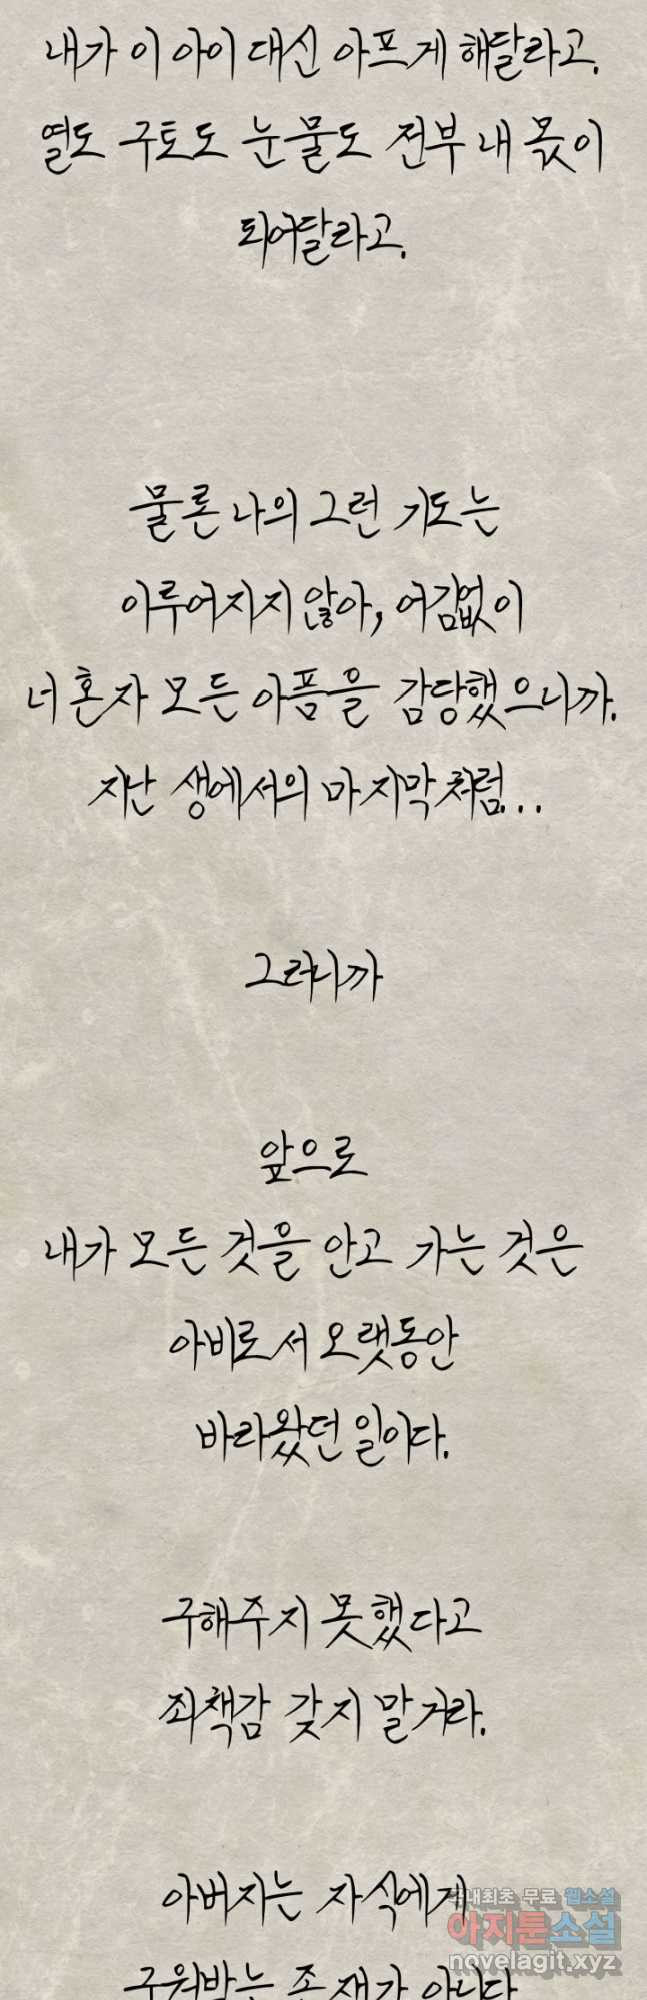 내가 이 아이 대신 아프게 해달라고.
열도 구토도 눈물도 전부 내 몫이
되어달라고.
물론 나의 그런 기도는
이루어지지 않아, 여김없이
너 혼자 모든 아픔을 감당했으니까.
지난 생에서의 마지막처럼...
그러니까
앞으로
내가 모든 것을 안고 가는 것은
아비로서 오랫동안
바라왔던 일이다.
구해주지 못했다고
죄책감 갖지 말거라.
아버지는 자식에게
구원받는 존재가 아니다
국내최초 무료 웹소설
아지툰소설
novelagit.xyz